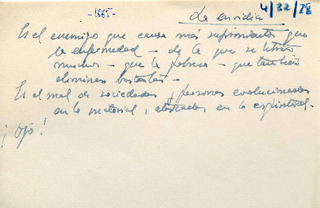 -1665-
La envidia
4/32/78
Es el enemigo que causa más sufrimientos que
la enfermedad - de la que se libran
muchos - que la pobreza - que también
eliminan bastantes -
Es el mal de sociedades y personas evolucionadas
en lo material, atrasadas en lo espiritual.
¡Ojo!